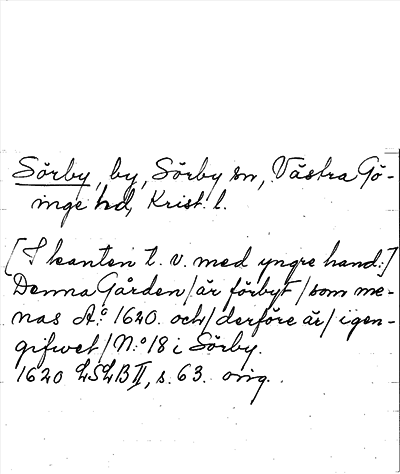 Sörby, by, Sörby sn, Västra Gö-
inge hd, Krist. l.
[I kanten t. v. med yngre hand:]
Denna Gården/är förbyt/som me-
nas A:o 1620. och/derföre är/igen-
gifwet/N:o 18 i Sörby.
1620 LSLB II, s. 63. orig.